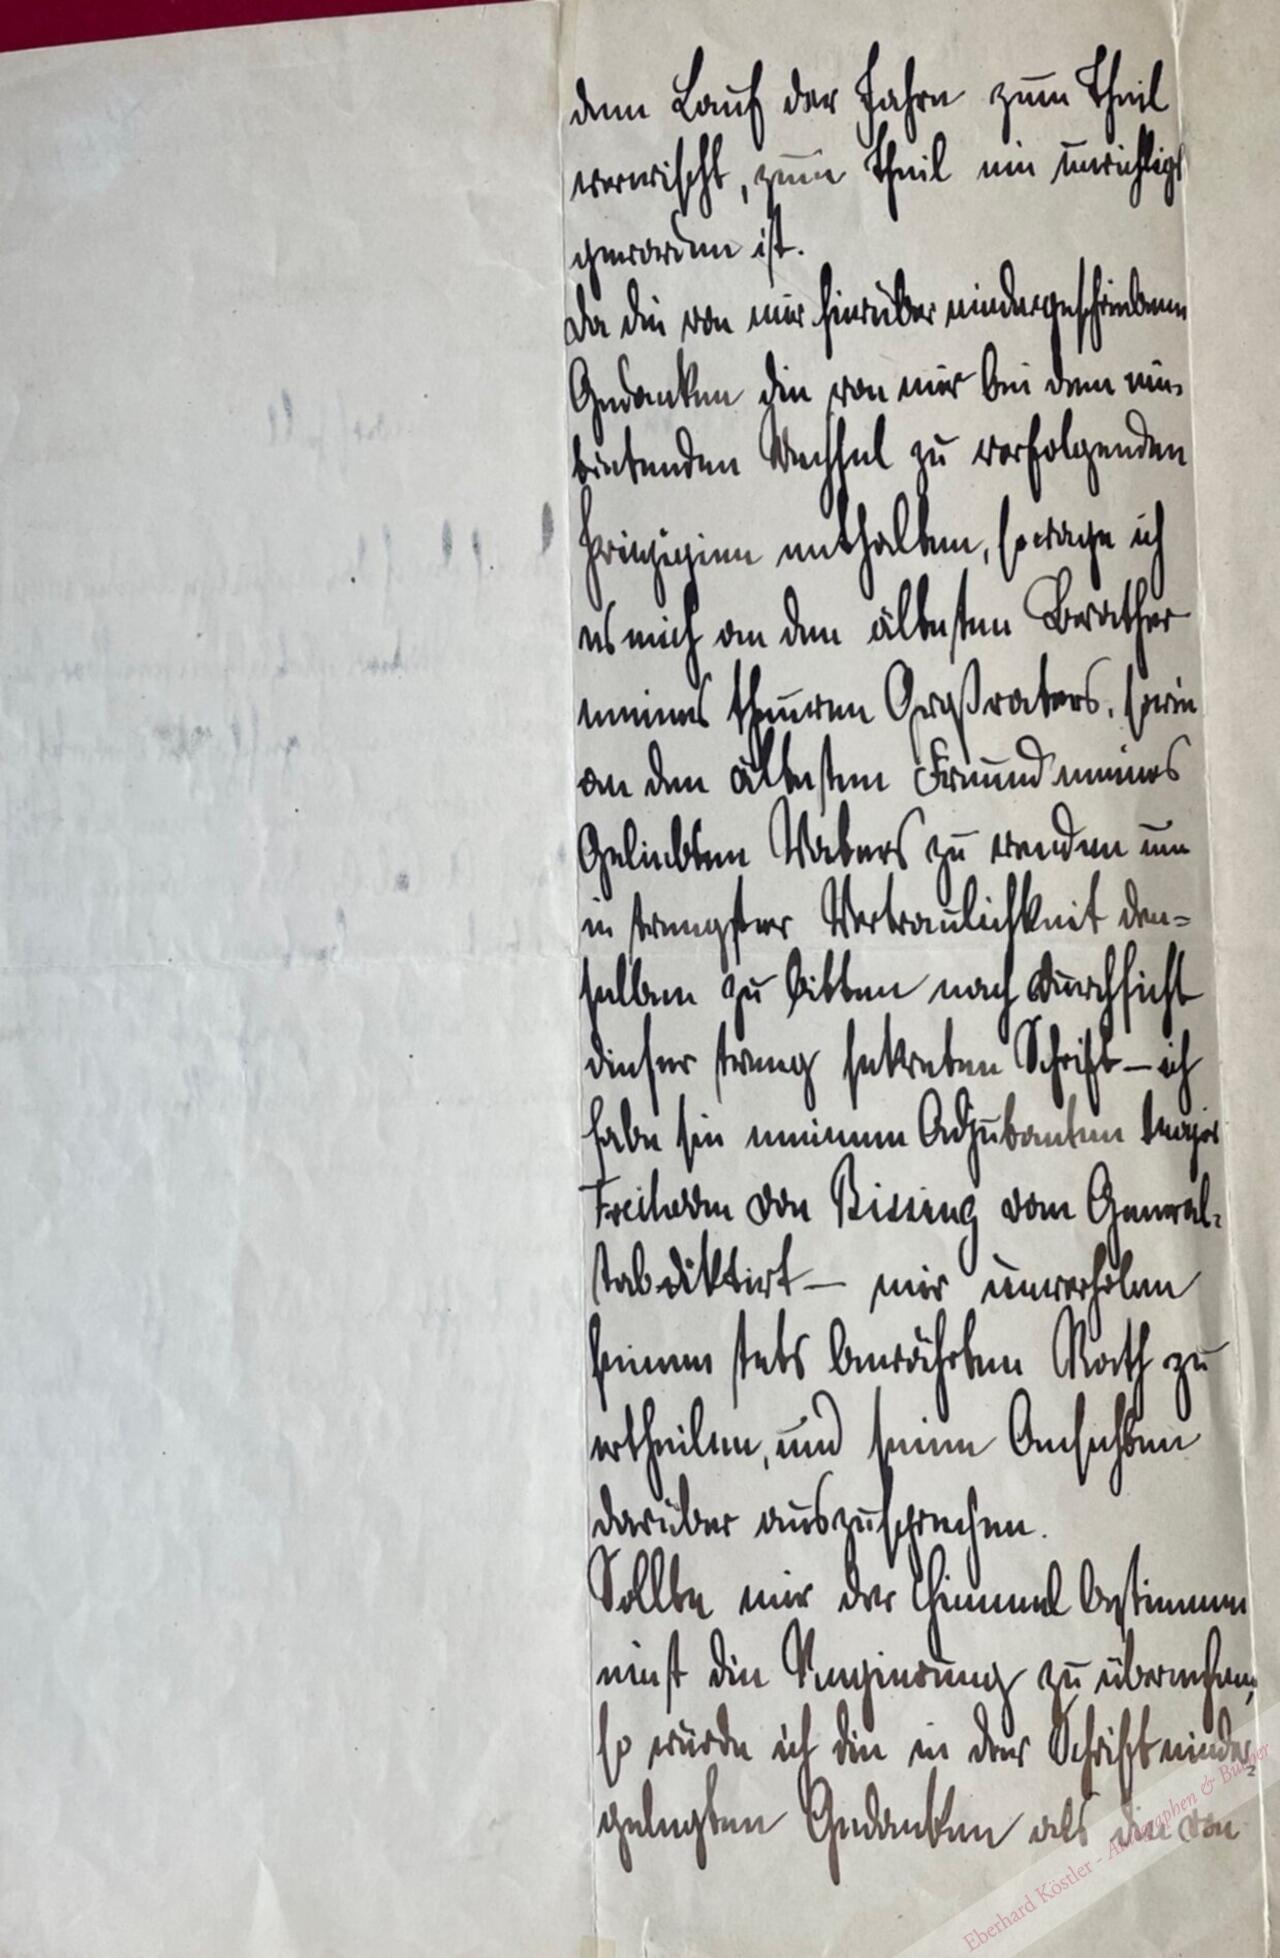 dem Lauf der Jahre zum Theil
verwischt, zum Theil ein unrichtiges
geworden ist.
Da die von mir hierüber niedergeschriebenen
Gedanken die von mir bei dem ein-
tretenden Wechsel zu verfolgenden
Prinzipien enthalten, so wage ich
es mich an den ältesten Berather
meines theuren Großvaters, sowie
an den ältesten Freund meines
Geliebten Vaters zu wenden um
in strengster Vertraulichkeit den=
selben zu bitten nach Durchsicht
dieser streng sekreten Schrift – ich
habe sie meinem Adjutanten Major
Freiherrn von Bissing vom General-
stab diktirt – mir unverholen
seinen stets bewährten Rath zu
ertheilen, und seine Ansichten
darüber auszusprechen.
Sollte mir der Himmel bestimmen
einst die Regierung zu übernehmen,
so würde ich die in der Schrift nieder=
gelegten Gedanken als die von
Eberhard Köstler - Autographen & Bücher